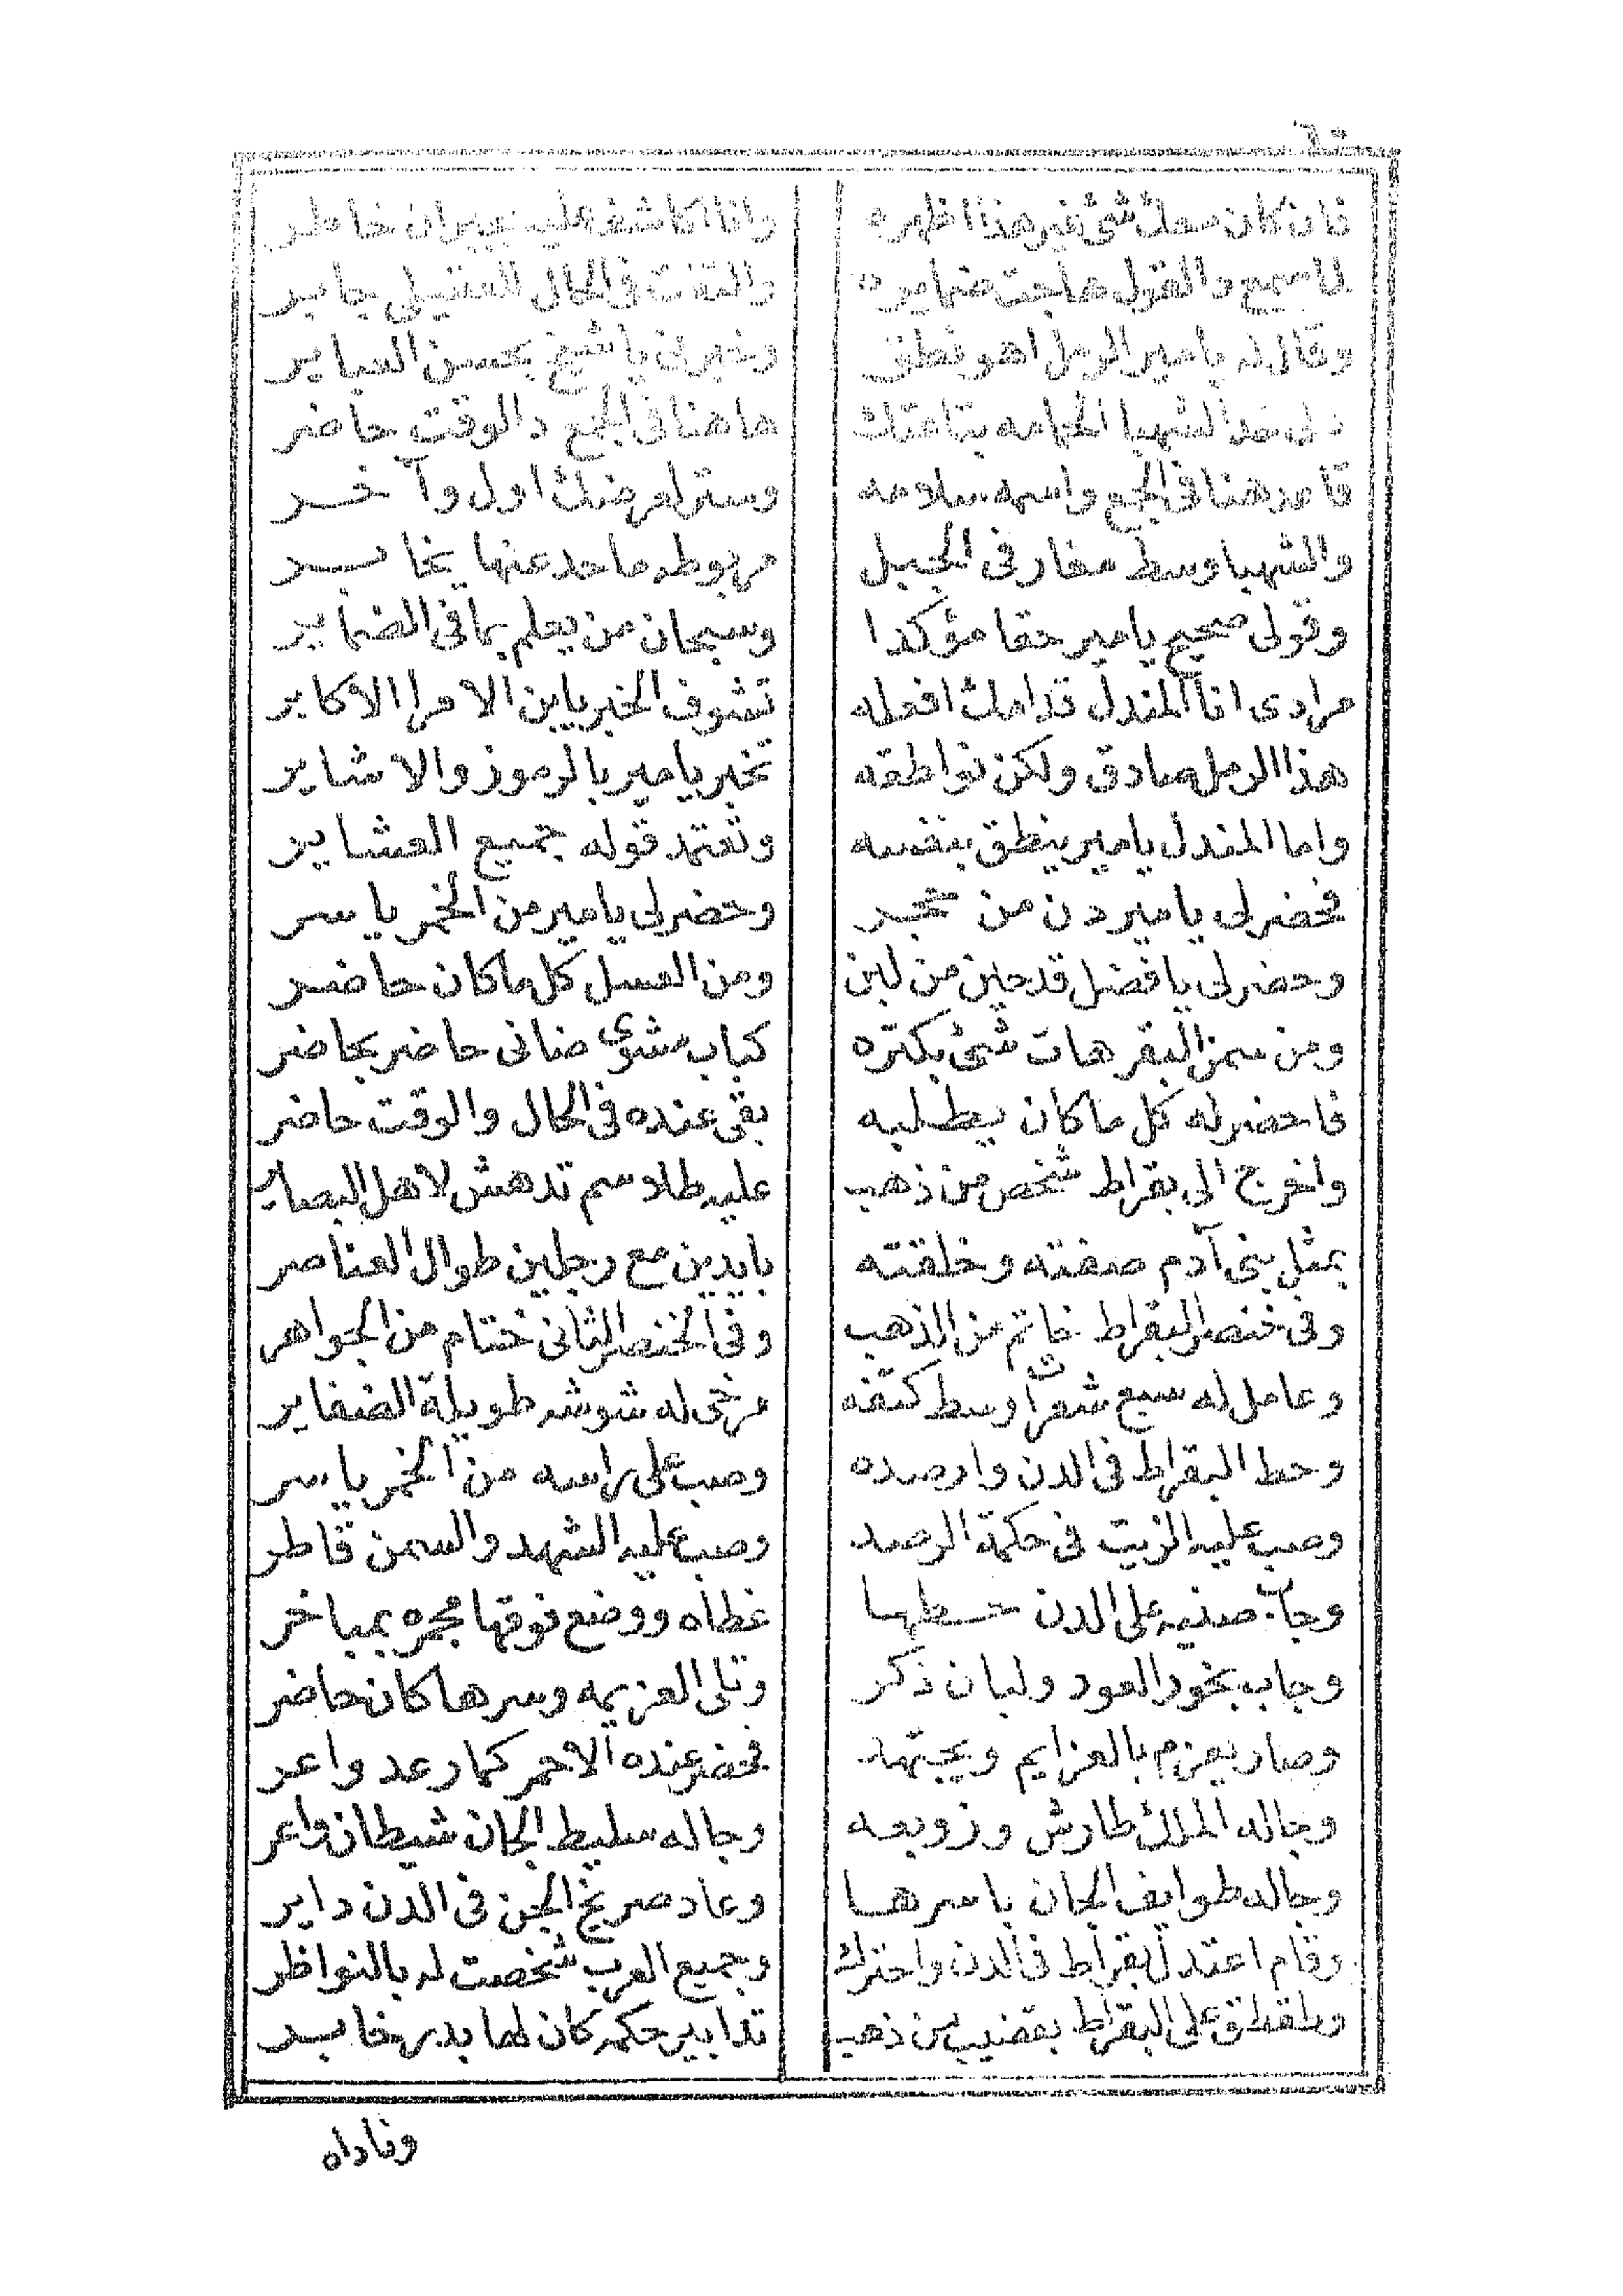 فان كان معك شئ غير هذا اظهره وانا اكاشف عليه بميزان خاطر
لما سمع دا القول هاجت ضمايره والتفت في الحال للعقيلى جابر
وقال له يا مير الرمل اهو نطق وخبرنى يا شيخ بحسن العباير
دلى خد الشهبا الحمامه بتاعتك هاهنا فى الجمع دا الوقت حاضر
قاعد هنا فى الجمع واسمه سلامه وسترله منك اول وآخر
والشهبا وسط مغار فى الجبل مربوطه ماحد عنها يخابر
وقولى صحيح يا مير حقا مؤكدا وسبحان من يعلم بما فى الضماير
مرادى انا المندل قدامك افعله تشوف الخبر يا بن الامرا الاكابر
هذا الرمل صادق ولكن نواطقه تخبر يا مير بالرموز والاشاير
واما المندل يا مير ينطق بنفسه وتعتمد قوله جميع العشاير
فحضر لى يا مير دن من عنجد وحضر لى يا مير من الخمر ياسر
وحضر لى يا فضل قدحين من لبن ومن العسل كل ما كان حاضر
ومن سمن البقر هات شئ بكتره كباب مشوى ضانى حاضر بحاضر
فاحضر له كل ما كان يطلبه بقى عنده فى الحال والوقت حاضر
واخرج الى بقراط شخص من ذهب عليه طلاسم تدهش لاهل البصاير
بمثل بنى آدم صفته وخلقته بايدين مع رجلين طوال العناصر
وفى خنصر البقراط خاتم من الذهب وفى الخنصر الثانى ختام من الجواهر
وعامل له سبع شعرات وسط كتفه مرخى له شوشه طويلة الضفاير
وحط البقراط فى الدن وارصده وصب على راسه من الخمر ياسر
وصب عليه الزيت فى حكمة الرصد وصب عليه الشهد والسمن قاطر
وجآء صنيه على الدن حطها غطاه ووضع فوقها مجمره بمباخر
وجاب بخور العود ولبان ذكر وتلى العزيمه وسرها كان حاضر
وصار يعزم بالعزايم ويجتهد فحضر عنده الاحمر كما رعد واعر
وجاله الملك طارش وزوبعه وجاله سليط الجان شيطان واعر
وجاله طوايف الجان باسرها وعاد صريخ الجن فى الدن داير
وقام اعتدل بقراط فى الدن واحترك وجميع العرب شخصت له بالنواظر
وطقطق على البقراط بقضيب من ذهب تدابير حكمه كان لها بدر خابر
وناداه